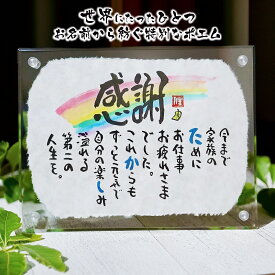 世界にたったひとつ
お名前から紡ぐ特別なポエム
感謝
今まで
家族の
ために
お仕事
お疲れさま
でした。
これからも
ずっと元気で
自分の楽しみ
溢れる
第二の
人生を。